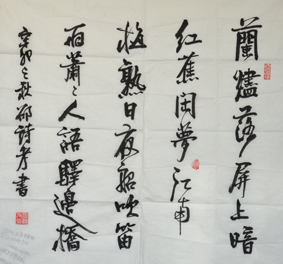 蘭燼落屏上暗
紅蕉闲夢江南
梅熟日夜船吹笛
雨蕭々人語驛邊橋
辛卯之秋
書